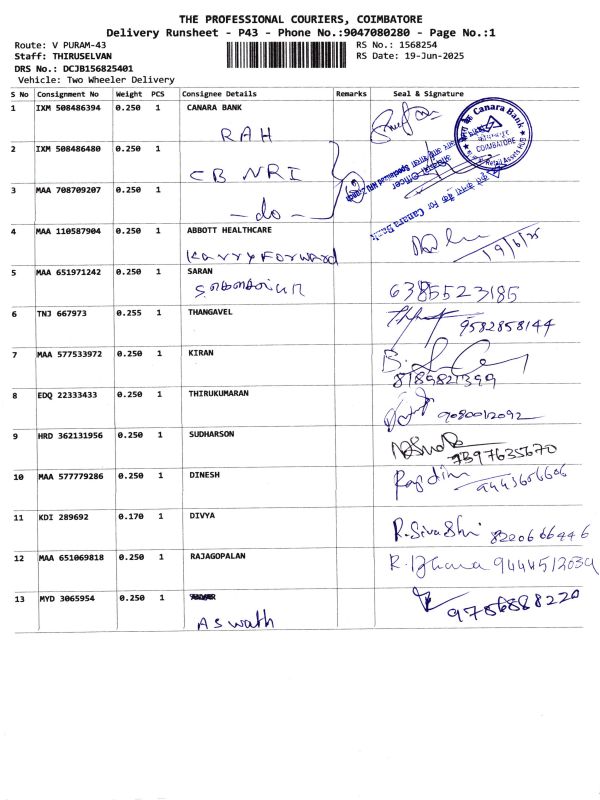 THE PROFESSIONAL COURIERS, COIMBATORE
Delivery Runsheet - P43 - Phone No.:9047080280 - Page No.:1
Route: V PURAM-43 RS No.: 1568254
Staff: THIRUSELVAN RS Date: 19-Jun-2025
DRS No.: DCJB156825401
Vehicle: Two Wheeler Delivery
S No Consignment No Weight PCS Consignee Details Remarks Seal & Signature
1 IXM 508486394 0.250 1 CANARA BANK
RAH
Canara Bank
COIMBATORE
2 IXM 508486480 0.250 1
CB NRI
3 MAA 708709207 0.250 1
- do -
For Canara Bank
4 MAA 110587904 0.250 1 ABBOTT HEALTHCARE
Karry Forward 19/6/25
5 MAA 651971242 0.250 1 SARAN
6385523185
6 TNJ 667973 0.255 1 THANGAVEL
9582858144
7 MAA 577533972 0.250 1 KIRAN
8189821399
8 EDQ 22333433 0.250 1 THIRUKUMARAN
9080012092
9 HRD 362131956 0.250 1 SUDHARSON
7397635670
10 MAA 577779286 0.250 1 DINESH
9443606606
11 KDI 289692 0.170 1 DIVYA
8220666446
12 MAA 651069818 0.250 1 RAJAGOPALAN
9444512039
13 MYD 3065954 0.250 1
Aswath 9756888220